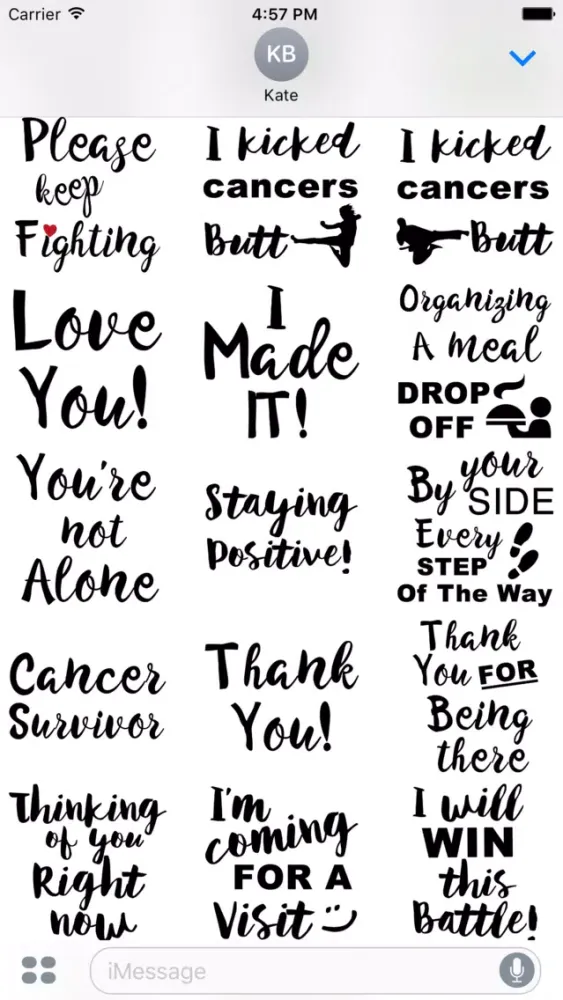 Carrier 4:57 PM
KB
Kate
Please
keep
Fighting
I kicked
cancers
Butt
I kicked
cancers
Butt
Love
You!
I
Made
IT!
Organizing
A meal
DROP
OFF
You're
not
Alone
Staying
Positive!
By your
SIDE
Every
STEP
Of The Way
Cancer
Survivor
Thank
You!
Thank
You FOR
Being
there
Thinking
of you
Right
now
I'm
coming
FOR A
Visit
I will
WIN
this
Battle!
iMessage